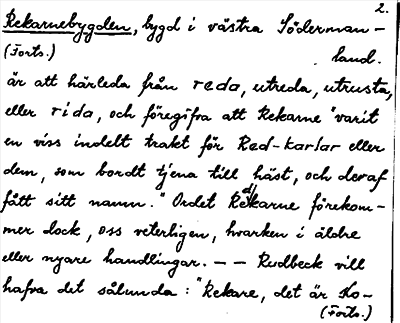 2.
Rekarnebygden, bygd i västra Söderman-
(Forts.) land.
är att härleda från reda, utreda, utrusta,
eller rida, och föregifva att Rekarne "varit
en viss indelt trakt för Red-karlar eller
dem, som bordt tjena till häst, och deraf
fått sitt namn." Ordet Redkarne förekom-
mer dock, oss veterligen, hvarken i äldre
eller nyare handlingar. — — Rudbeck vill
hafva det sålunda: "Rekare, det är sko-
(Forts.)